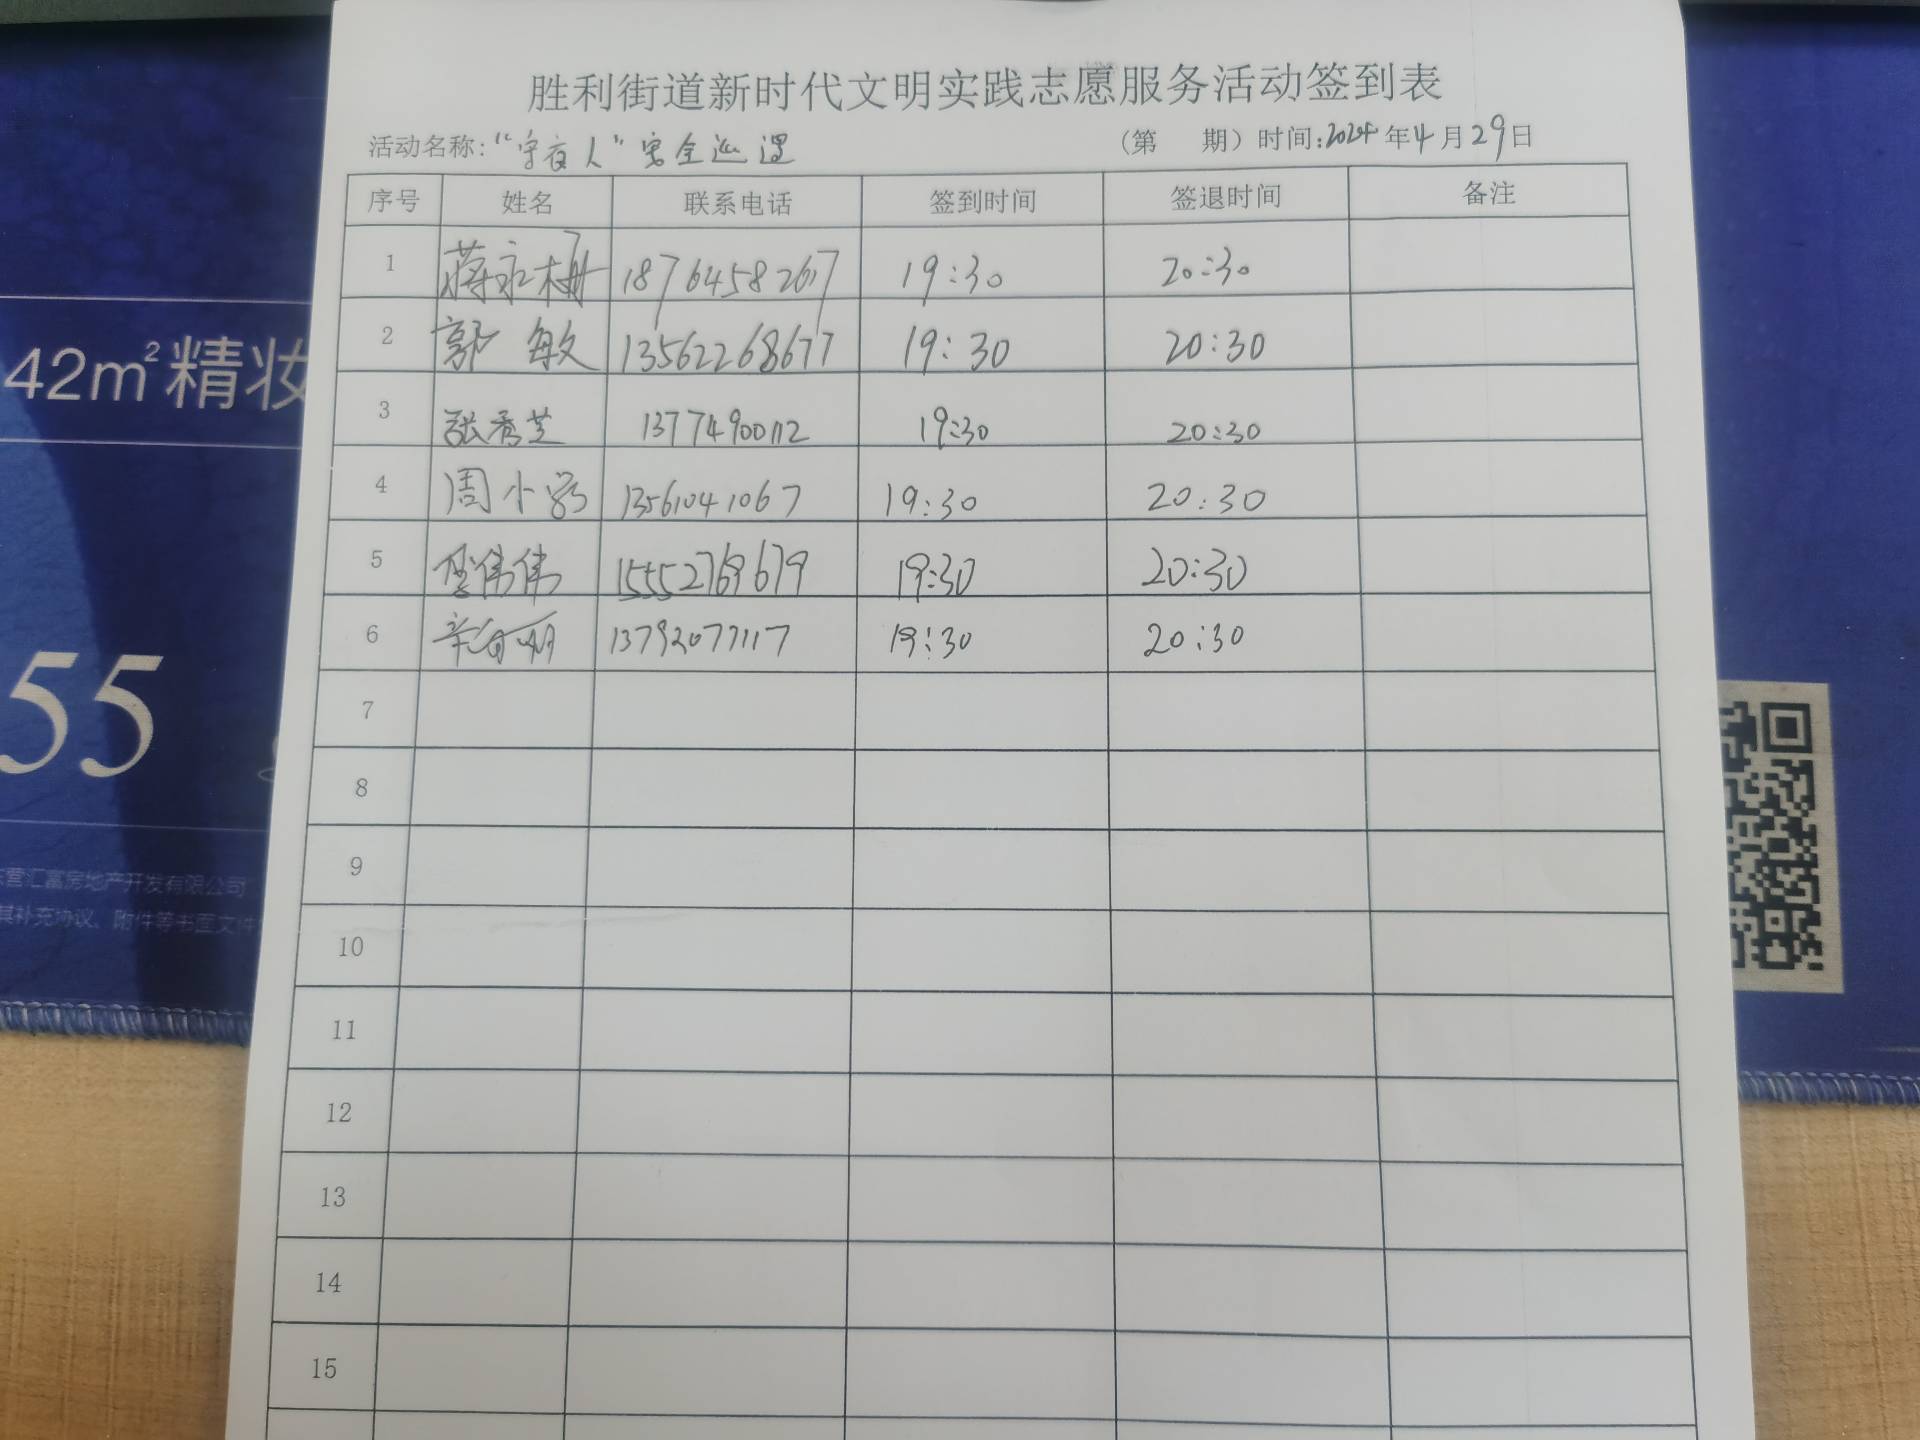 胜利街道新时代文明实践志愿服务活动签到表
活动名称:“守夜人”安全巡逻 (第 期) 时间:2024年4月29日
序号 姓名 联系电话 签到时间 签退时间 备注
1 蒋永梅 18764582617 19:30 20:30
2 郭敏 13562268677 19:30 20:30
3 张秀芝 13774900112 19:30 20:30
4 周小 13561041067 19:30 20:30
5 李伟伟 15552769679 19:30 20:30
6 13792077117 19:30 20:30
7
8
9
10
11
12
13
14
15
42m²精妆
55
营汇富房地产开发有限公司
其补充协议、附件等书面文件